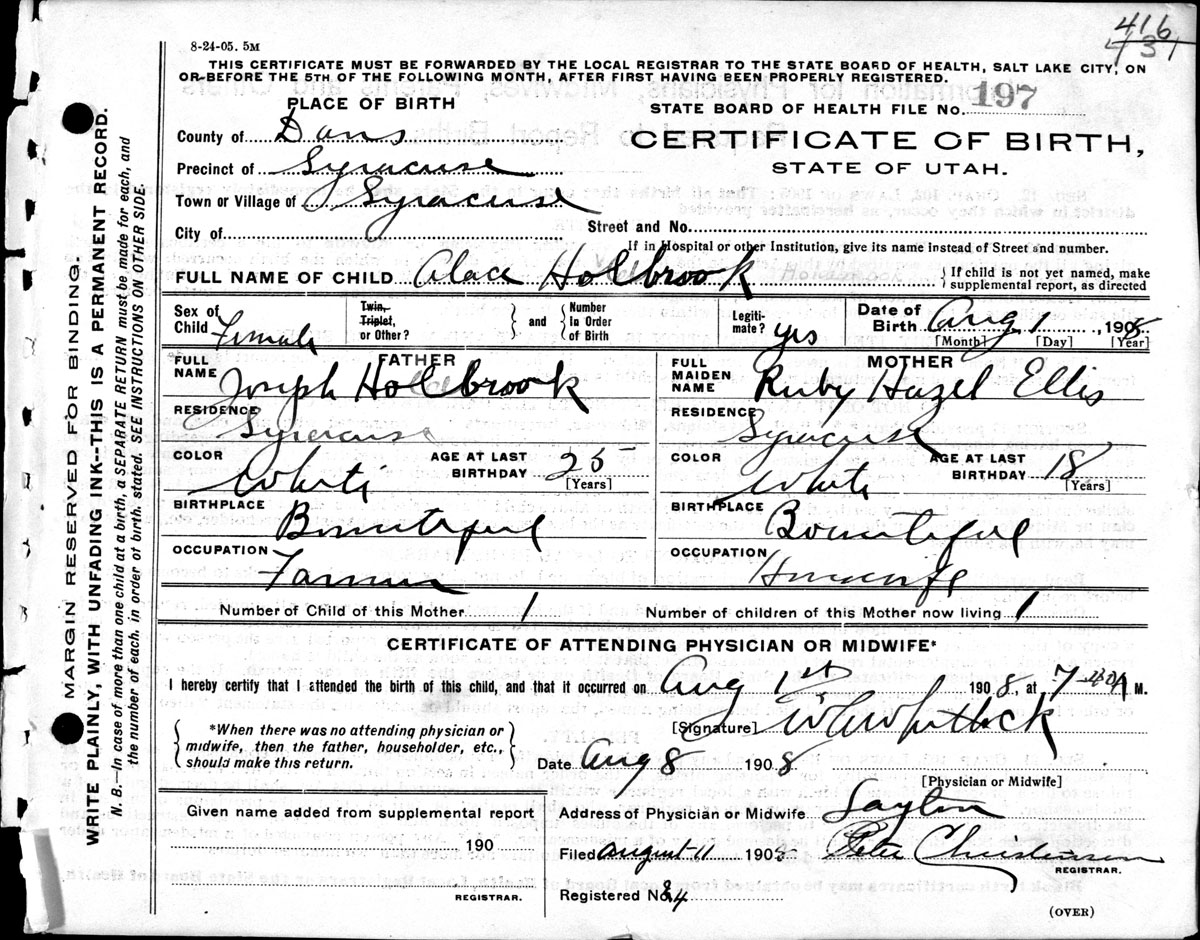 416
431
8-24-05. 5M
THIS CERTIFICATE MUST BE FORWARDED BY THE LOCAL REGISTRAR TO THE STATE BOARD OF HEALTH, SALT LAKE CITY, ON
OR BEFORE THE 5TH OF THE FOLLOWING MONTH, AFTER FIRST HAVING BEEN PROPERLY REGISTERED.
PLACE OF BIRTH
STATE BOARD OF HEALTH FILE No. 197
County of Davis
CERTIFICATE OF BIRTH,
Precinct of Syracuse
STATE OF UTAH.
Town or Village of Syracuse
City of Street and No.
If in Hospital or other Institution, give its name instead of Street and number.
FULL NAME OF CHILD Alace Holbrook { If child is not yet named, make
supplemental report, as directed
Sex of Child Female
Twin, Triplet, or Other? { } and { Number In Order of Birth
Legiti-mate? yes
Date of Birth Aug 1, 1908
[Month] [Day] [Year]
FATHER
FULL NAME Joseph Holbrook
RESIDENCE Syracuse
COLOR White AGE AT LAST BIRTHDAY 25
[Years]
BIRTHPLACE Bountiful
OCCUPATION Farmer
MOTHER
FULL MAIDEN NAME Ruby Hazel Ellis
RESIDENCE Syracuse
COLOR White AGE AT LAST BIRTHDAY 18
[Years]
BIRTHPLACE Bountiful
OCCUPATION Housewife
Number of Child of this Mother 1 Number of children of this Mother now living 1
CERTIFICATE OF ATTENDING PHYSICIAN OR MIDWIFE*
I hereby certify that I attended the birth of this child, and that it occurred on Aug 1st 1908, at 7 A M.
*When there was no attending physician or
midwife, then the father, householder, etc.,
should make this return.
[Signature] Whitlock
Date Aug 8 1908
[Physician or Midwife]
Given name added from supplemental report
190
REGISTRAR.
Address of Physician or Midwife Layton
Filed August 11 1908 Peter Christensen
REGISTRAR.
Registered No. 84
(OVER)
MARGIN RESERVED FOR BINDING.
WRITE PLAINLY, WITH UNFADING INK--THIS IS A PERMANENT RECORD.
N. B.—In case of more than one child at a birth, a SEPARATE RETURN must be made for each, and
the number of each, in order of birth, stated. SEE INSTRUCTIONS ON OTHER SIDE.